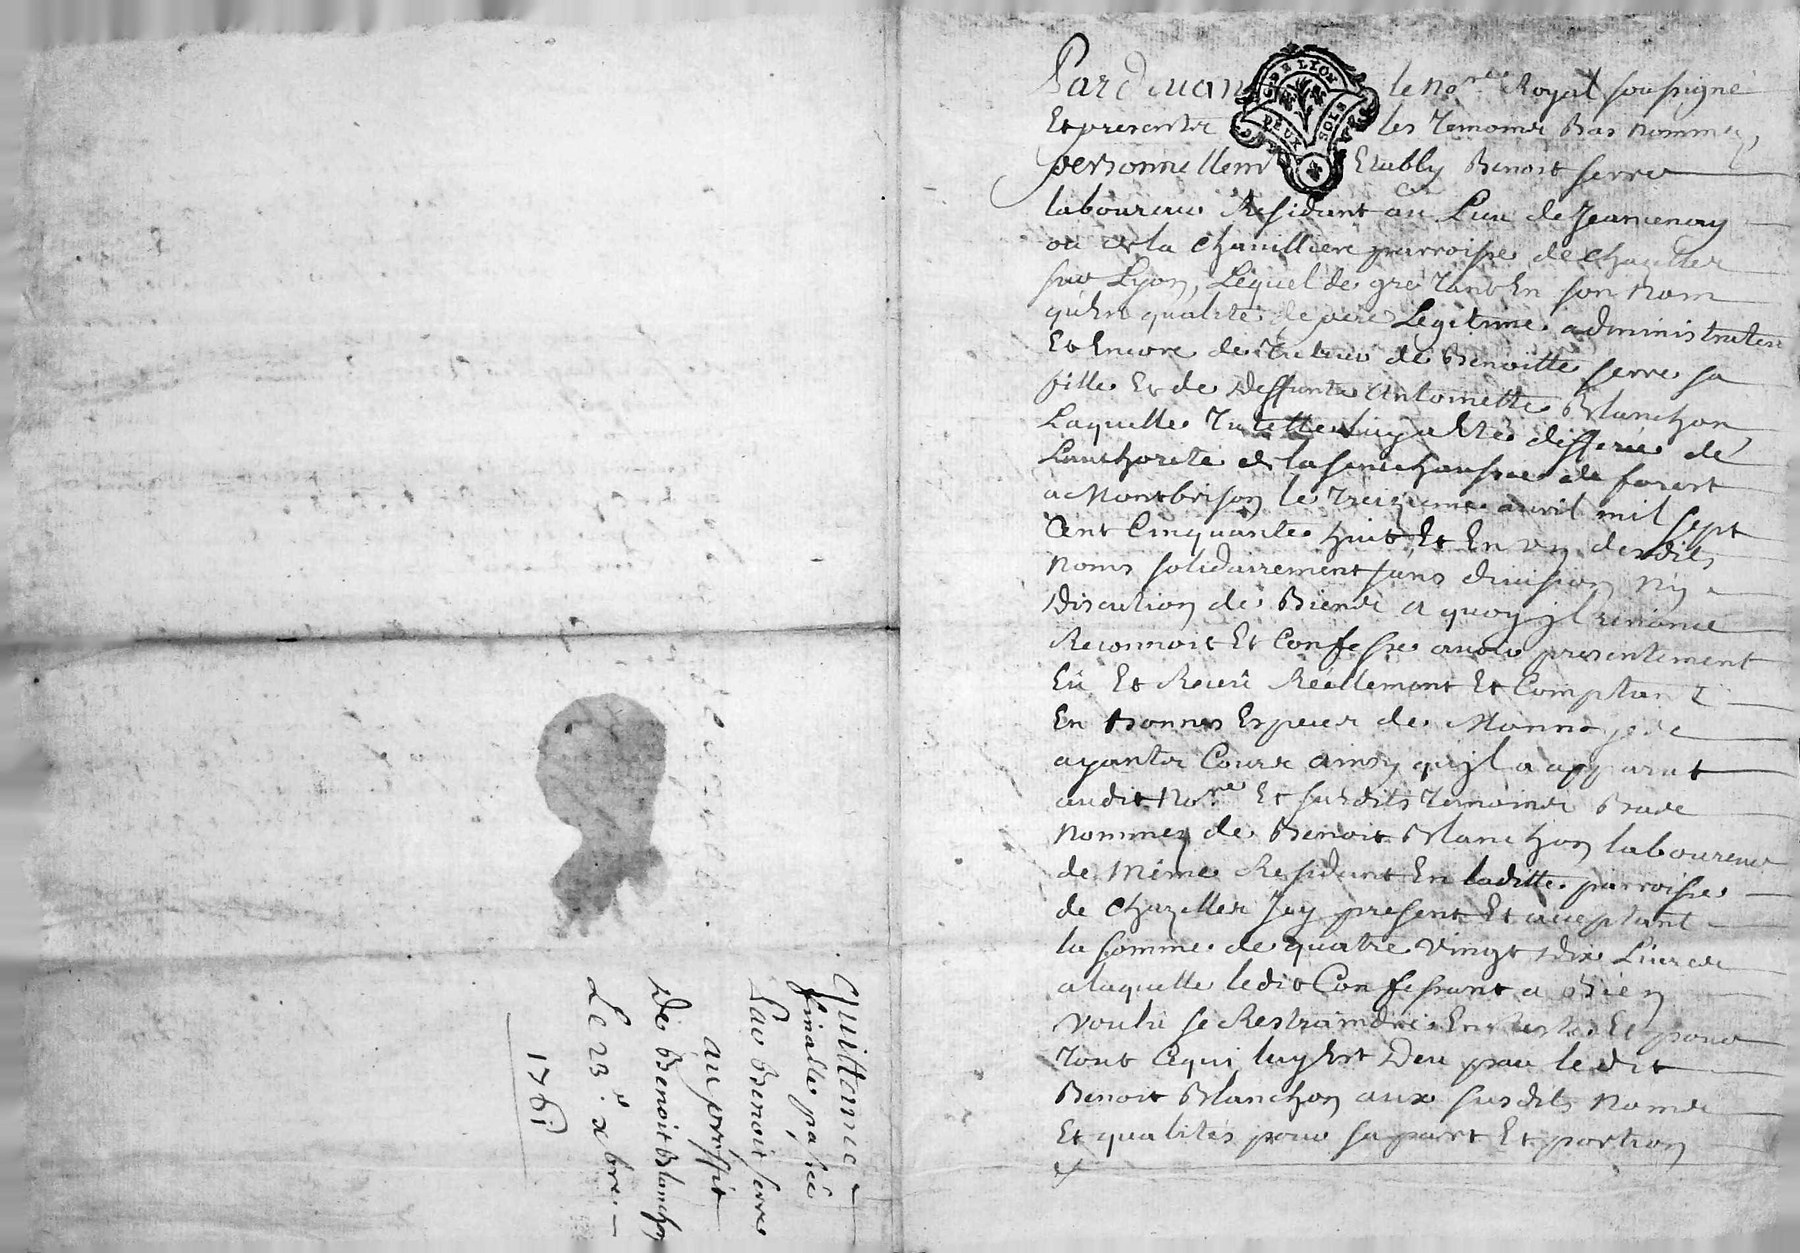 Quittance
finalle passée
Par Benoit serre
au proffit
De Benoit Blanchon
Le 23e xbre
1761
G. DE LYON
DEUX SOLS
Pardevant le No.re Royal soussigné
Et presents les Temoins Bas nommez,
personnellem Etably Benoit serre
laboureur Residant au Lieu de
ou de la parroisse de Chazelles
sur Lyon, Lequel de gré tant En son Nom
qu'En qualité de pere Legitime administrateur
Et Encore de Tuteur de Benoitte serre sa
fille Et de deffunte Antoinette Blanchon,
Laquelle Tutelle luy a Eté differée de
L'authorité de la senechaussée de forest
a Montbrison le Treizieme avril mil sept
Cent Cinquante huit, Et En un desdits
Noms solidairement sans division ny
discution de Biens a quoy jl renonce
Reconnoit Et Confesse avoir presentement
Eü Et Receü Réellement Et Comptant
En Bonnes Especes de Monnoye
ayants Cours ainsy qu'jl a apparut
audit No.re Et susdits Temoins Bas
Nommez de Benoit Blanchon laboureur
de Même Residant En laditte parroisse
de Chazelles Jcy present Et acceptant
la somme de quatre Vingt dix Livres
a laquelle ledit Confessant a Bien
Voulu se Restraindre Et pour
Tout Ce qui luy Est Deu par le dit
Benoit Blanchon aux susdits Noms
Et qualités pour sa part Et portion